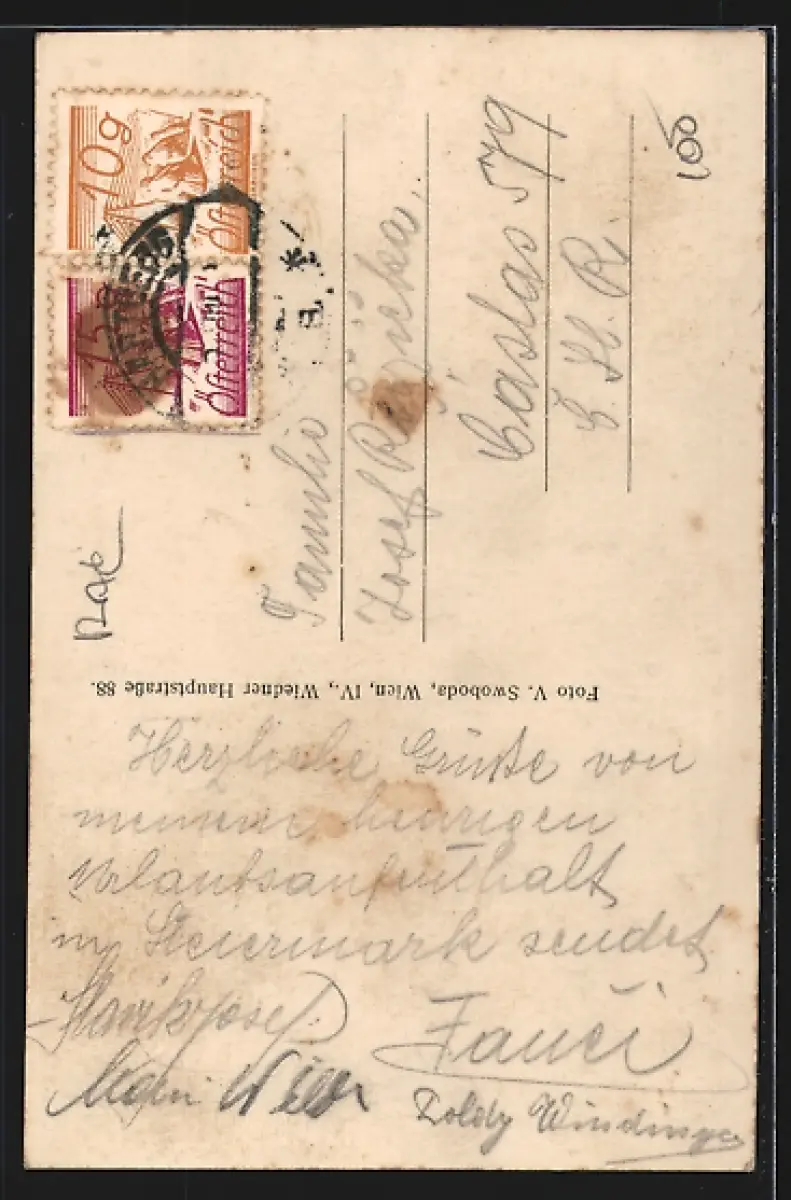 10g
Österreich
15g
Österreich
100
Familie
Josef Růžička
Čáslav 579
Č. Sl. R.
Foto V. Swoboda, Wien, IV., Wiedner Hauptstraße 88.
Herzliche Grüße von
meinem heurigen
Urlaubsaufenthalt
in Steiermark sendet
Josef
Fanči
Poldy Windinger